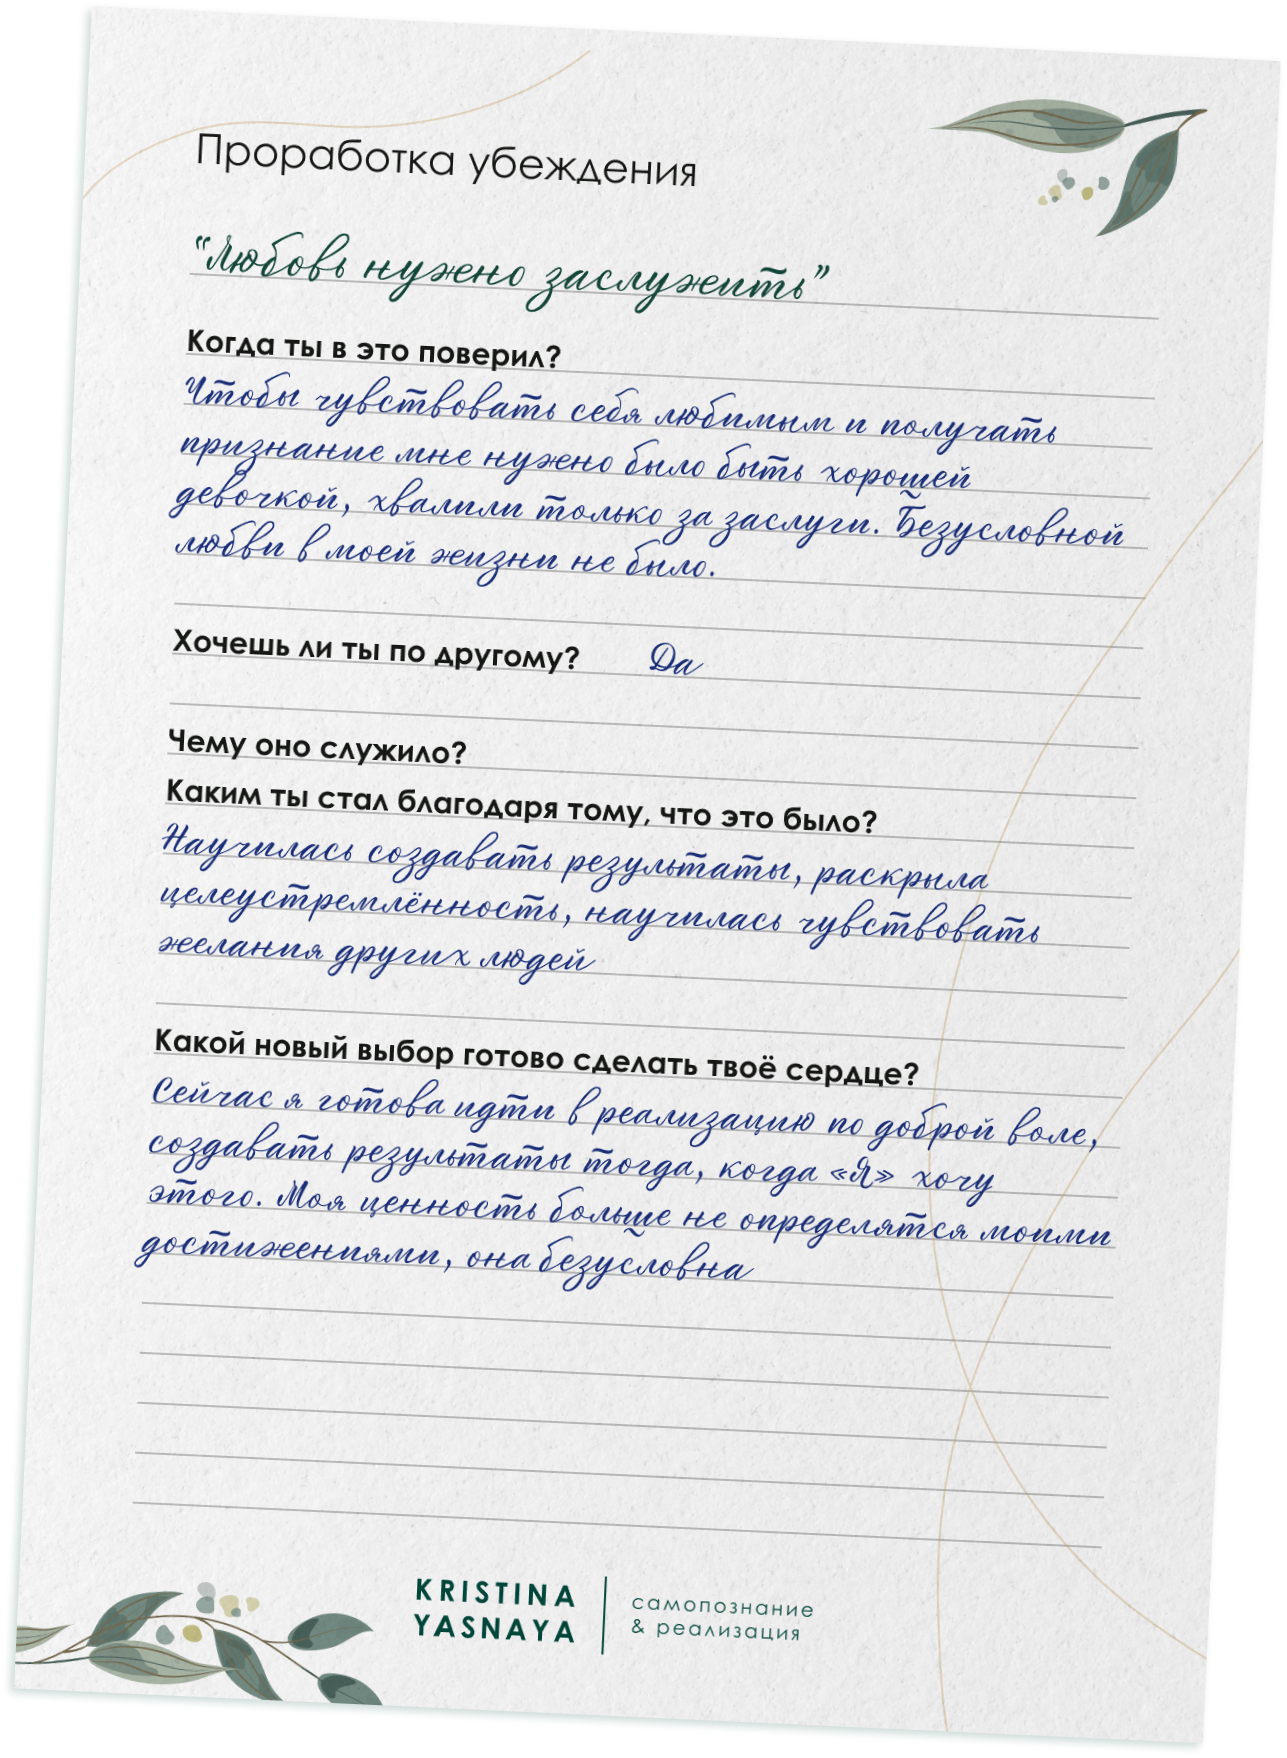 Проработка убеждения
“Любовь нужно заслужить”
Когда ты в это поверил?
Чтобы чувствовать себя любимым и получать
признание мне нужно было быть хорошей
девочкой, хвалили только за заслуги. Безусловной
любви в моей жизни не было.
Хочешь ли ты по другому? Да
Чему оно служило?
Каким ты стал благодаря тому, что это было?
Научилась создавать результаты, раскрыла
целеустремлённость, научилась чувствовать
желания других людей
Какой новый выбор готово сделать твоё сердце?
Сейчас я готова идти в реализацию по доброй воле,
создавать результаты тогда, когда «Я» хочу
этого. Моя ценность больше не определятся моими
достижениями, она безусловна
KRISTINA
YASNAYA
самопознание
& реализация